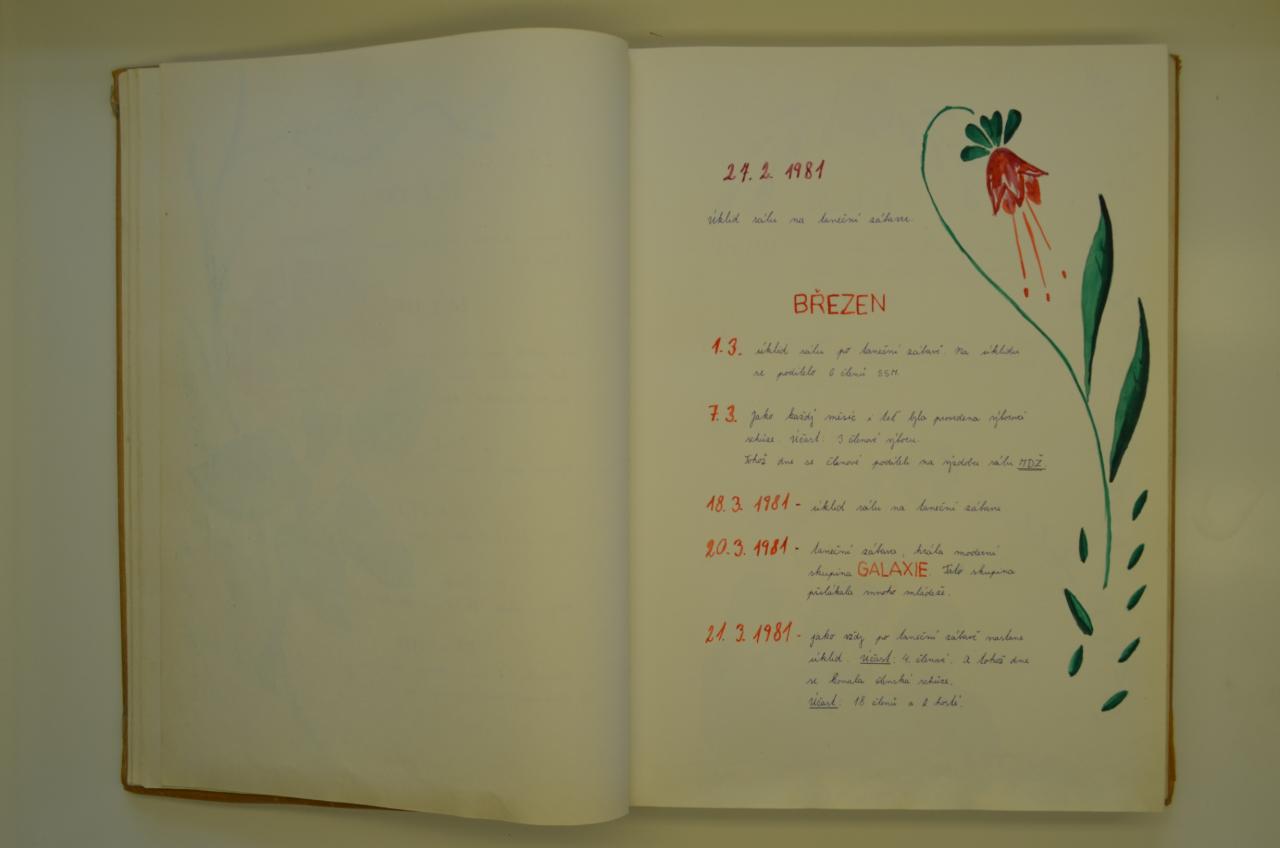 27. 2. 1981
Úklid sálu na taneční zábavu.
BŘEZEN
1. 3. úklid sálu po taneční zábavě. Na úklidu
se podílelo 6 členů SSM.
7. 3. Jako každý měsíc i teď byla provedena výborová
schůze. Účast: 3 členové výboru.
Tohož dne se členové podíleli na výzdobu sálu MDŽ.
18. 3. 1981 - úklid sálu na taneční zábavu
20. 3. 1981 - taneční zábava, hrála moderní
skupina GALAXIE. Tato skupina
přilákala mnoho mládeže.
21. 3. 1981 - jako vždy po taneční zábavě nastane
úklid. Účast: 4. členové. A tohož dne
se konala členská schůze.
Účast: 18 členů a 2 hosté.